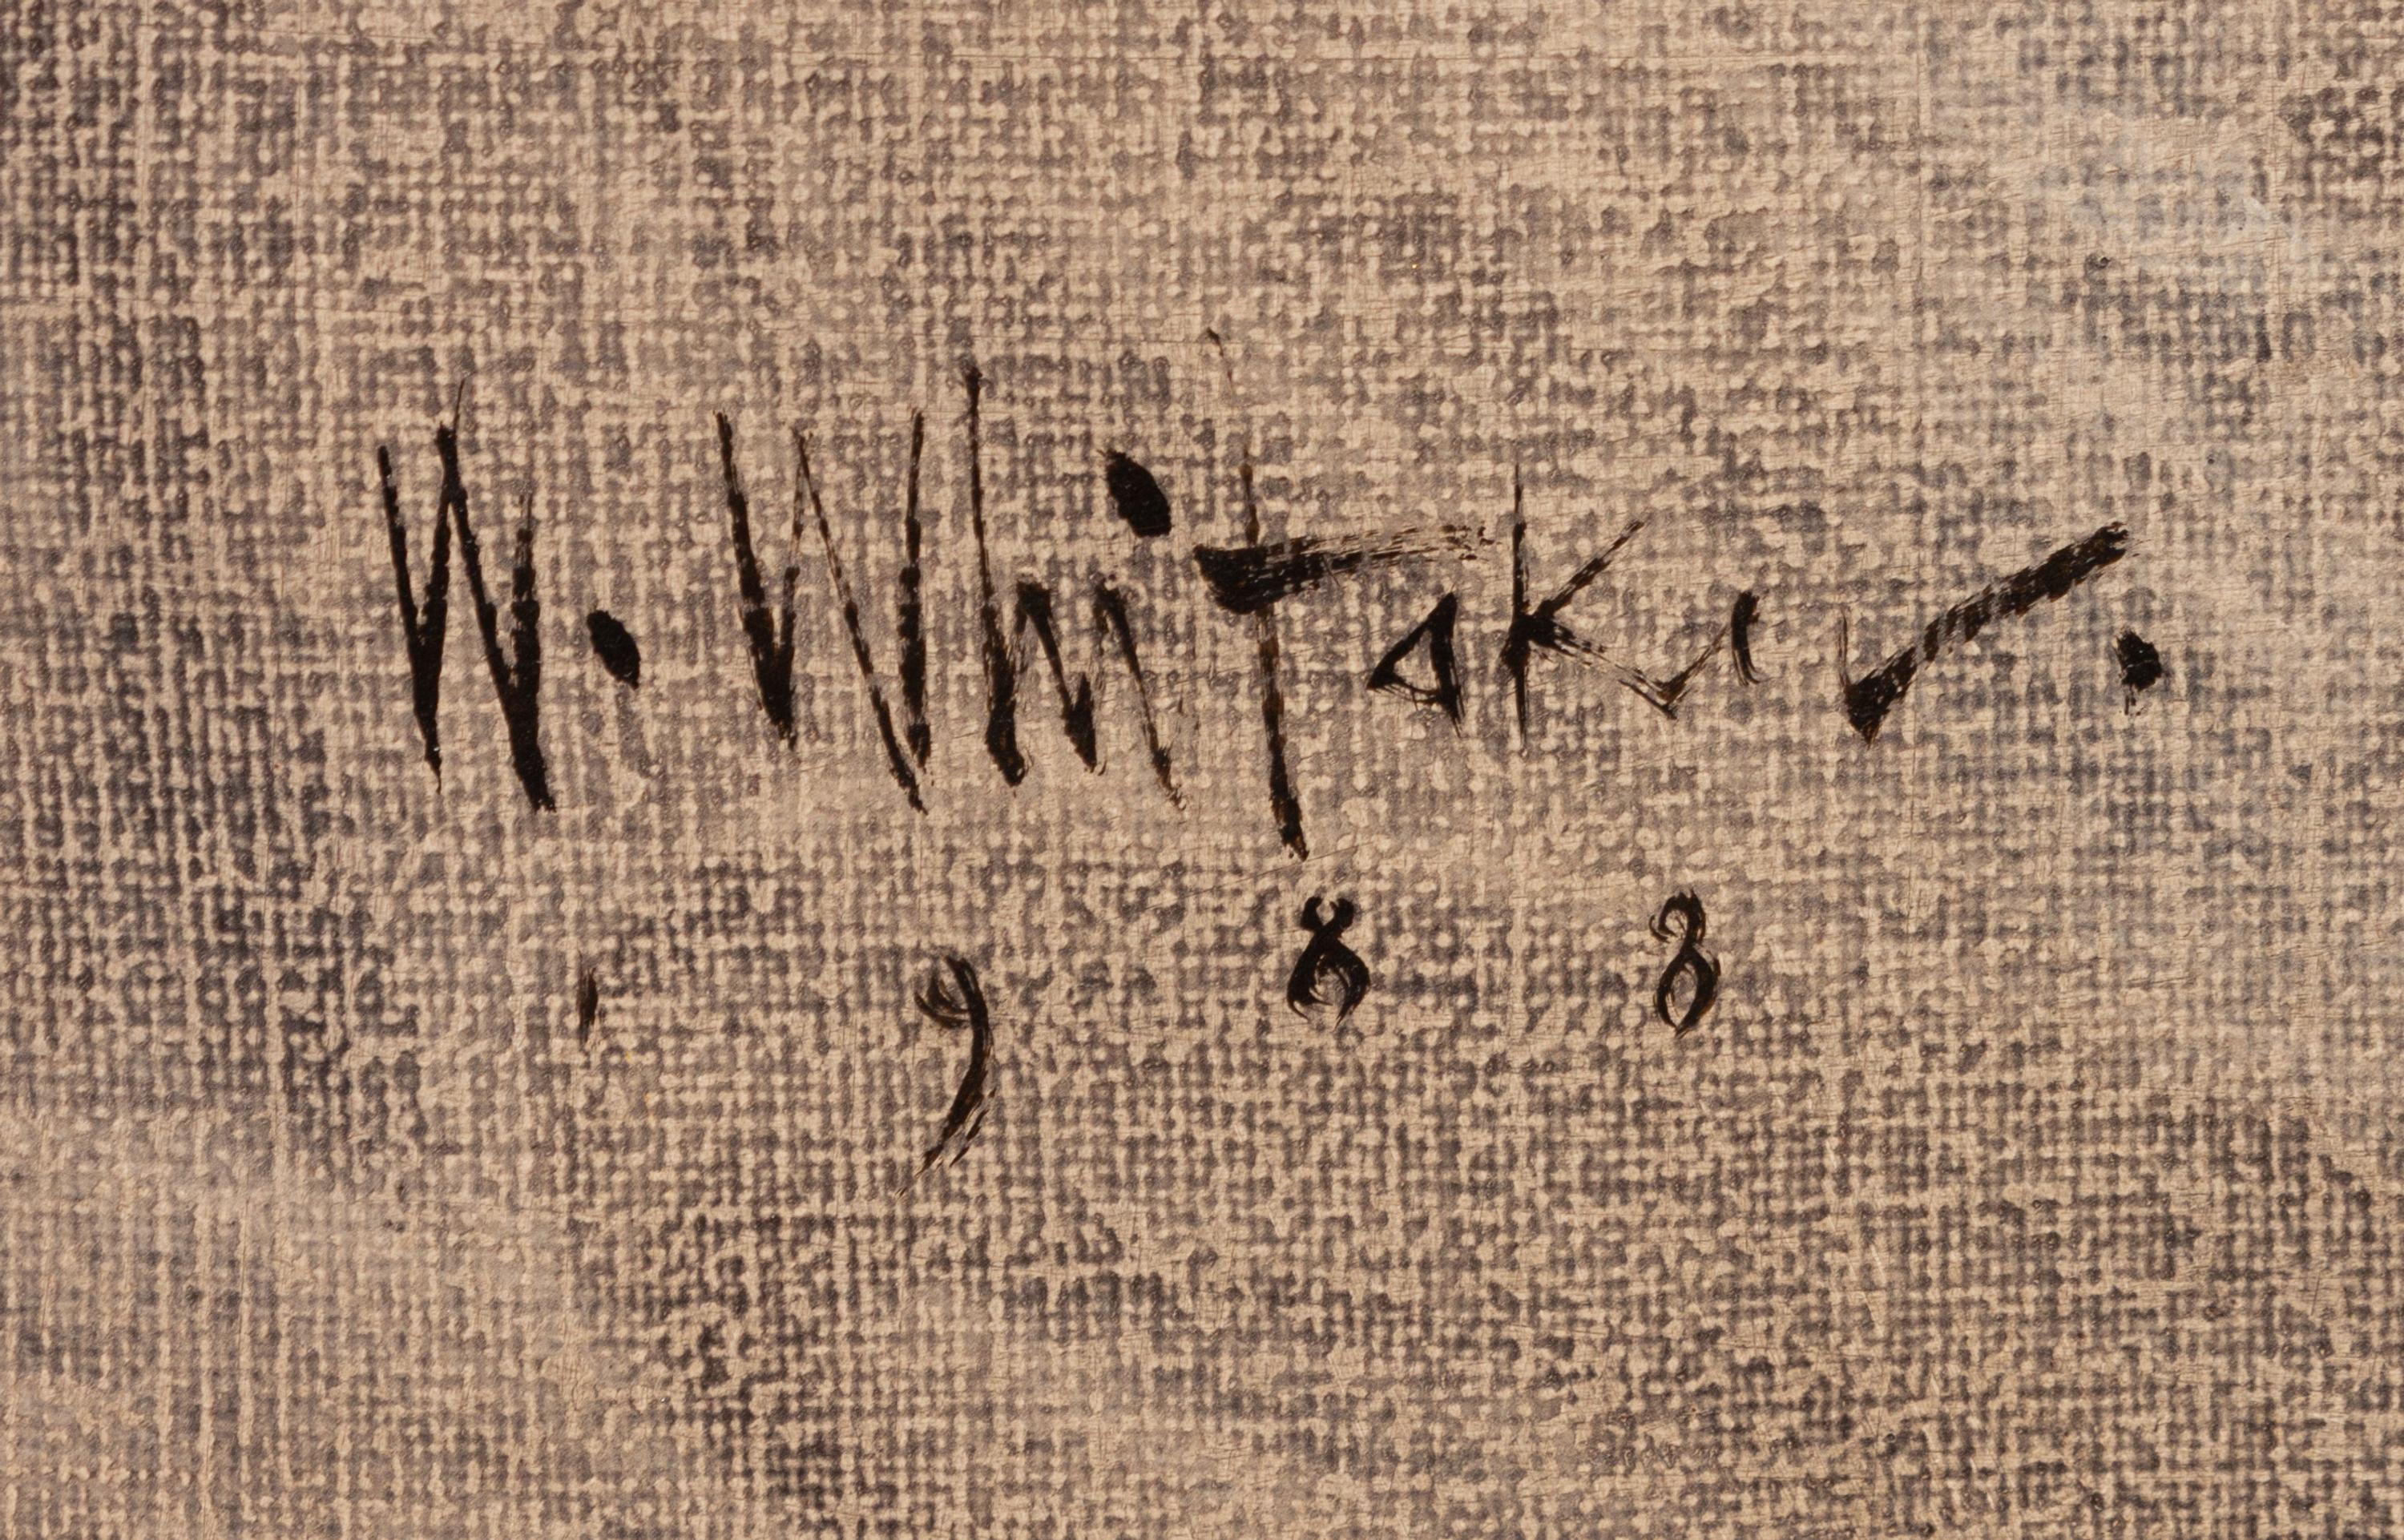 W. Whitaker.
1988